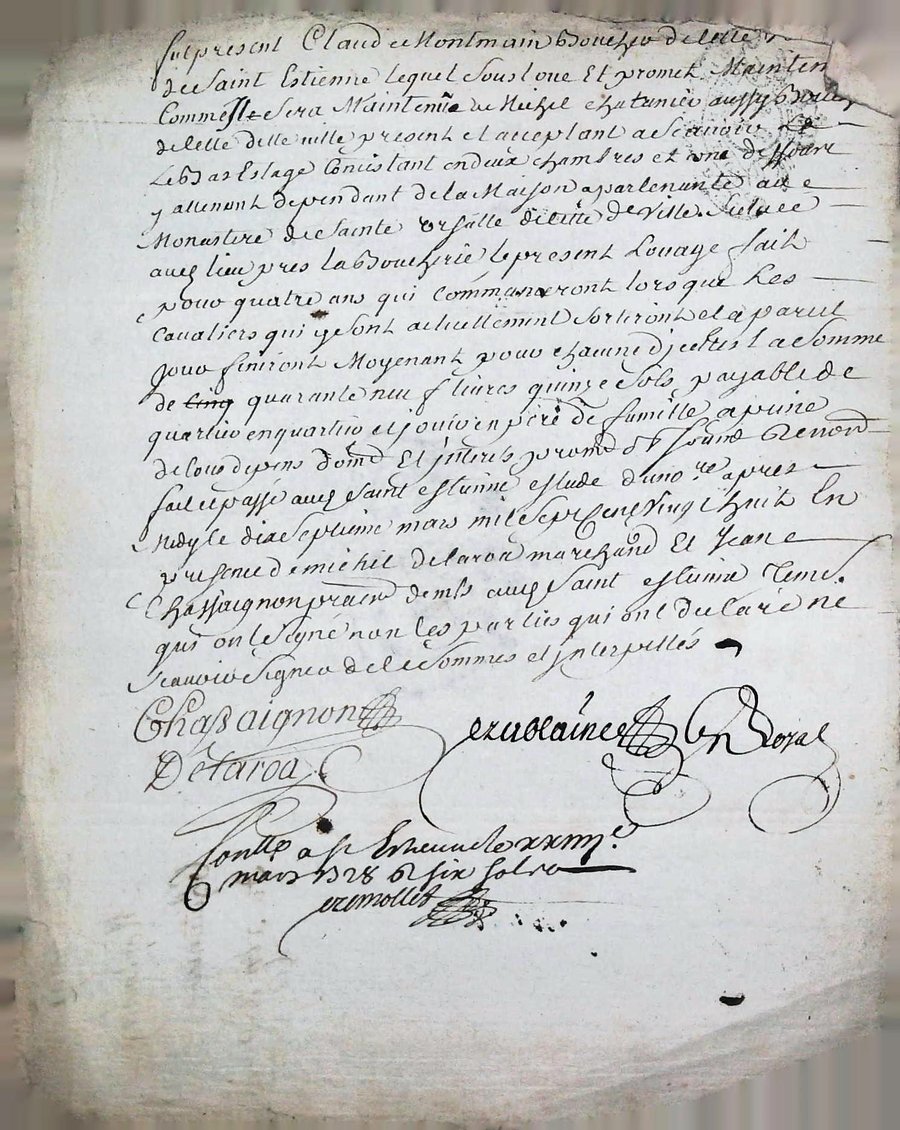 fut present Claude Montmain Boucher de cette v
de Saint Estienne lequel souloue Et promet Mainten
Comme Il sera Maintenüe a Michel chatanier aussy Bou
de cette ville present et acceptant a Scavoir Le
Le Bas Estage Consistant en deux chambres et une
y attenant dependant de la Maison apartenante au
Monastere de Sainte Ursulle de cette de Ville Scituée
aud lieu pres la Boucherie le present Louage fait
pour quatre ans qui Commanceront lorsque Les
Cavaliers qui y sont actuellement sortiront et a pareil
jour finiront Moyenant pour chacune d'jcelles la Somme
de cinq quarante neuf livres quinze Sols payable de
quartier en quartier et jouir en pere de famille a peine
de tous depens dom̃ Et jnterets prom̃
fait et passé aud Saint estienne estude du no.re apres
midy le dix septieme mars mil Sept Cent Vingt huit En
presence de michel delaroa marchand Et Jean
Chassaignon demt aud Saint estienne Tem.
qui ont Signé non les parties qui ont declaré ne
Scavoir Signer de ce Sommes et jnterpellés
Chassaignon
Delaroa
Royal
Contlle a st Estienne le
mars 1728 six sols